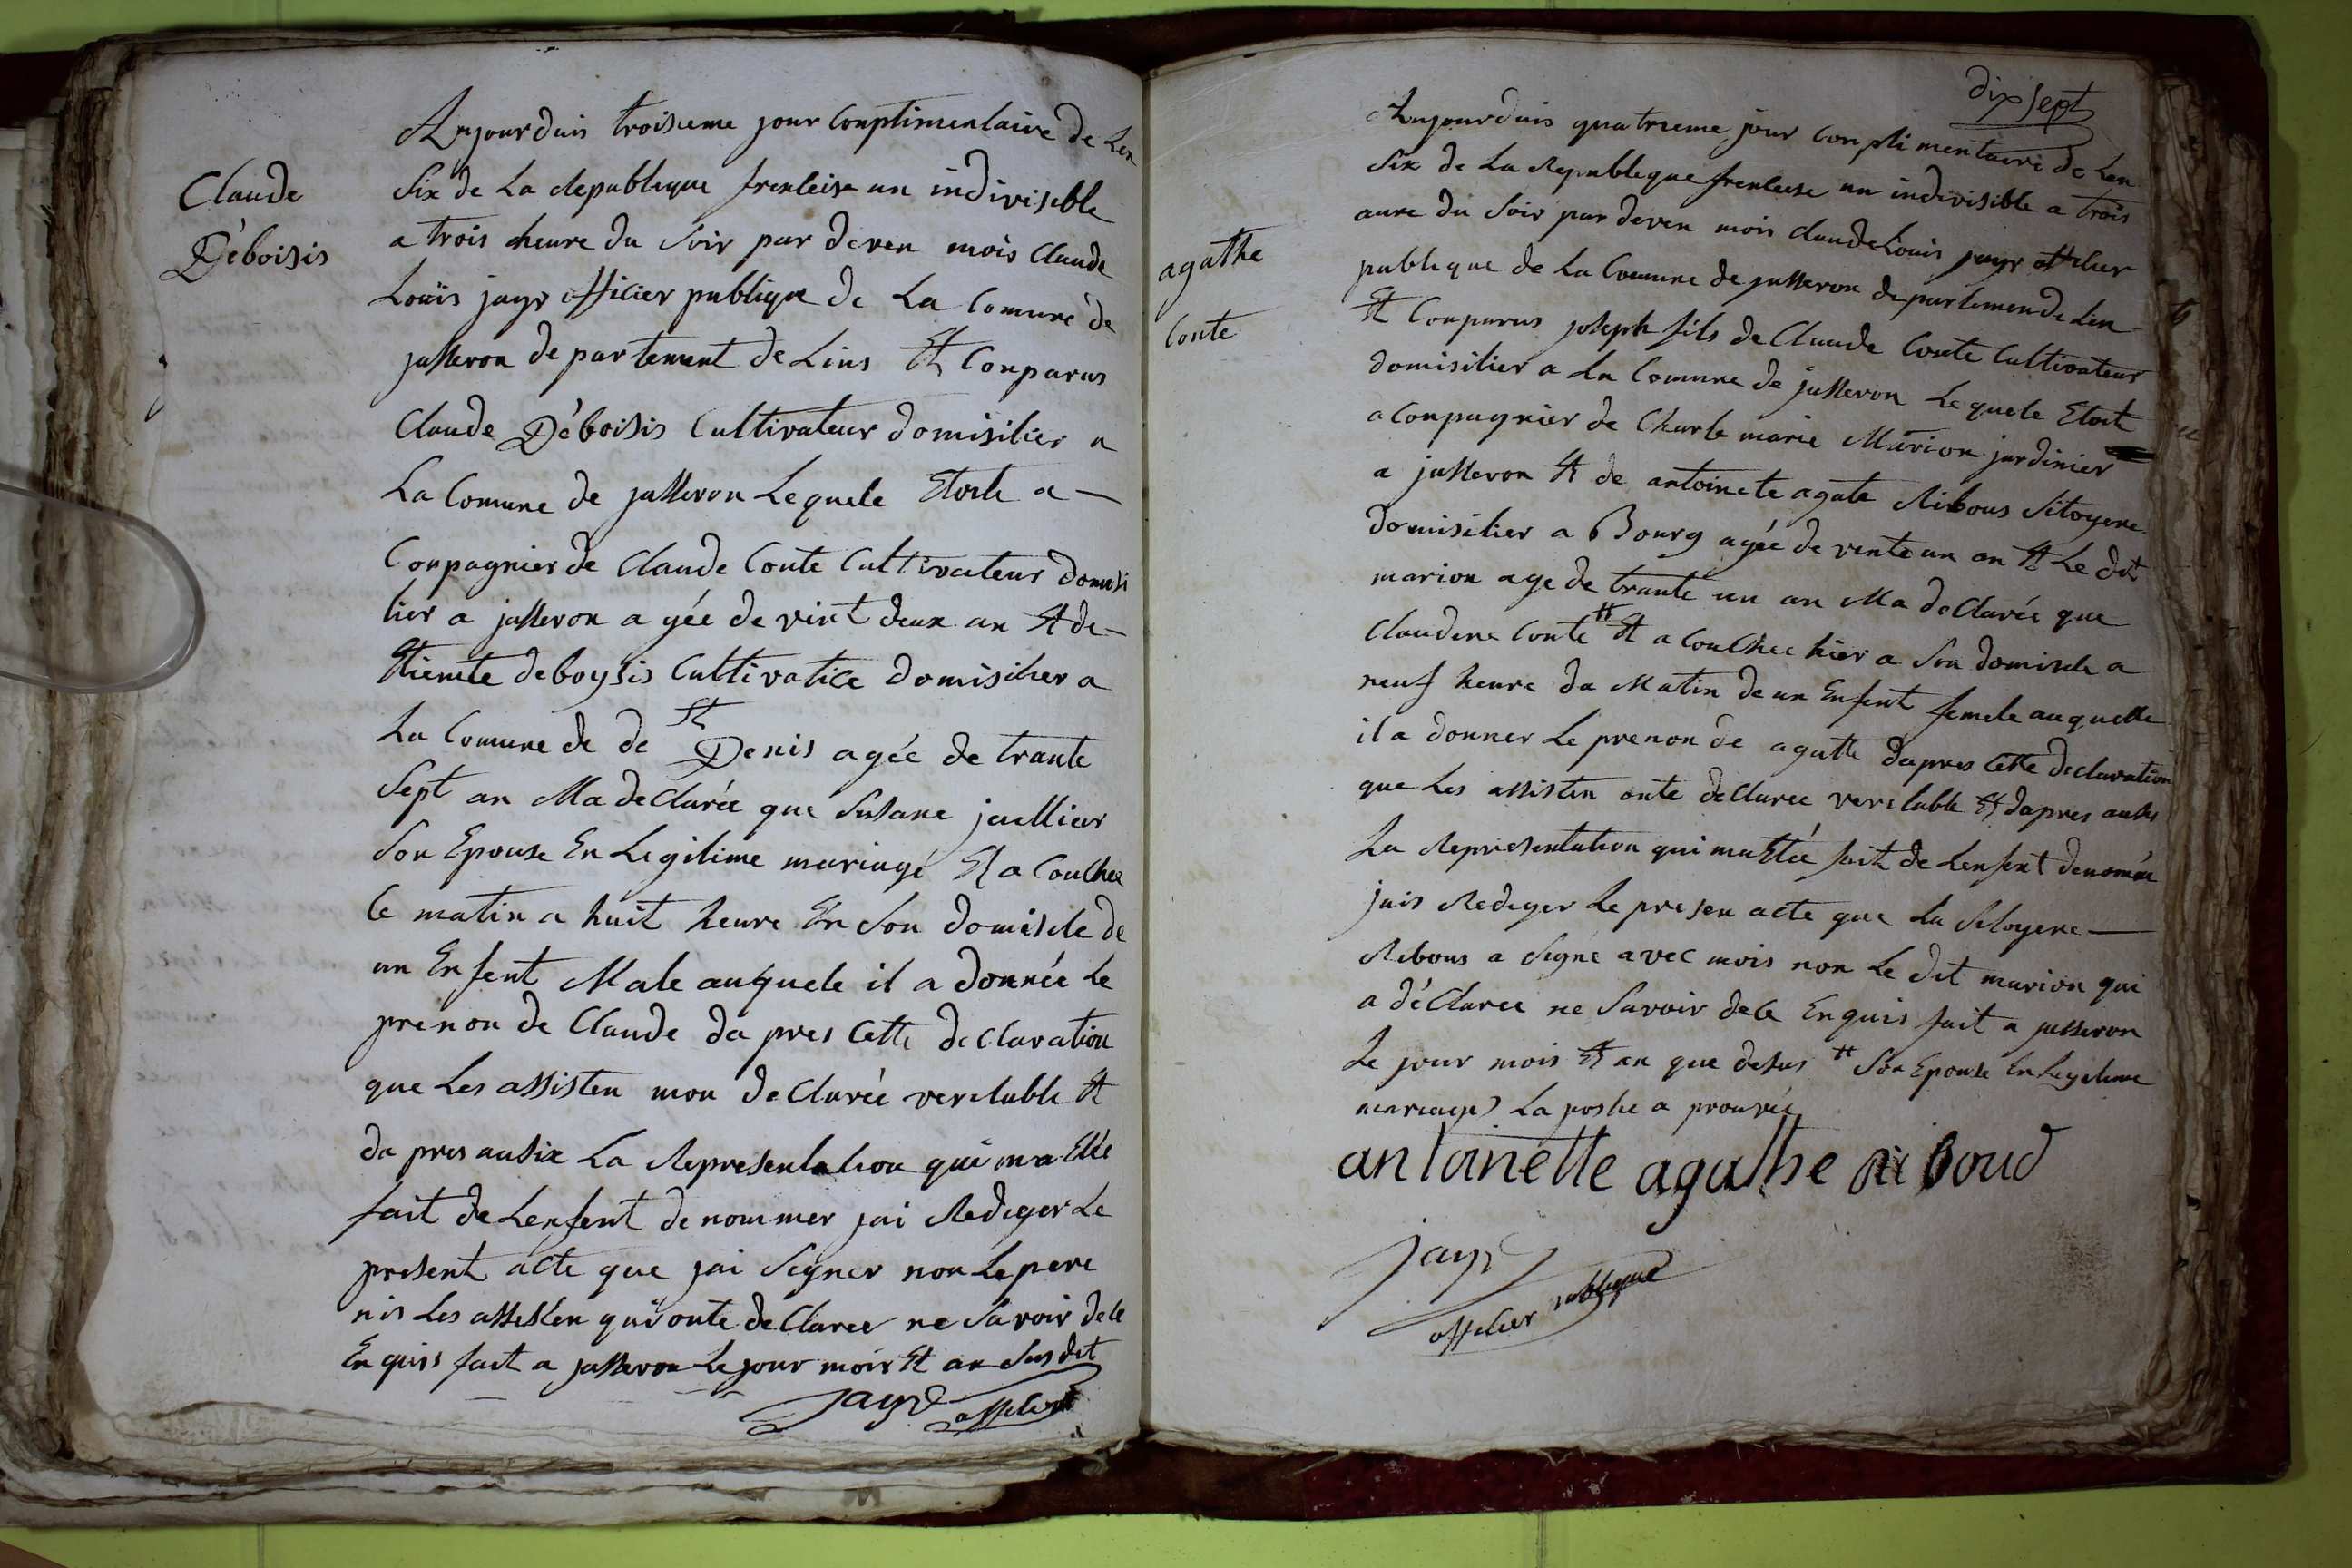 Claude
Déboisis
Aujourduis troisieme jour Conplimentaire de Len
Six de La Republique frenseise un indivisible
a trois heure du Soir par deven mois Claude
Louis jayr officier publique de La Comune de
jasseron departement de Lins Et Conparus
Claude Déboisis Cultivateur domisilier a
La Comune de jasseron Lequele Etoite a —
Conpagnier de Claude Conte Cultivateur domisi
lier a jasseron agée de vint deux an Et de —
Etienete deboysis Cultivatice domisilier a
La Comune de de St Denis agée de trante
Sept an Ma deClarée que Susane
Son Epouse En Legitime mariage Et a Couchee
Ce matin a huit heure En Son domisile de
un Enfent Male auquele il a donnée Le
prenon de Claude da pres Cette deClaration
que Les assisten mon deClarée veritable Et
da pres ausie La Representation qui ma Etée
fait de Lenfent denommer jai Rediger Le
present acte que jai Signer non Lepere
nis Les assisten qui onte deClarer ne Savoir dele
Enquis fait a jasseron Le jour mois Et an Susdit
jayr officier
dix sept
agathe
Conte
Aujourduis quatrieme jour Conplimentaire de Len
Six de La Republique frenseise un indivisible a trois
aure du Soir par deven mois claude Louis jayr officier
publique de La Comune de jasseron departemen de Lin
Et Conparus joseph fils de Claude Conte Cultivateur
domisilier a La Comune de jasseron Lequele Etoit
aConpagnier de Charle marie Marion jardinier
a jasseron Et de antoinete agate Ribous Sitoyene
domisilier a Bourg agée de vente un an Et Le dit
marion age de trante un an Ma deClarée que
Claudine Conte # Et a Couchee hier a Son domisile a
neuf heure du Matin de un Enfent femele auquelle
il a donner Le prenon de agatte dapres Cette declaration
que Les assisten onte deClaree veritable Et dapres ausie
La Representation qui ma Etée fait de Lenfent denomée
jais Rediger Le presen acte que La Sitoyene —
Ribous a Signé avec mois non Le dit marion qui
a déClarer ne Savoir dele Enquis fait a jasseron
Le jour mois Et an que desus # Son Epouse En Legitime
mariage) La postie a prouvée
antoinette agathe riboud
jayr
officier publique